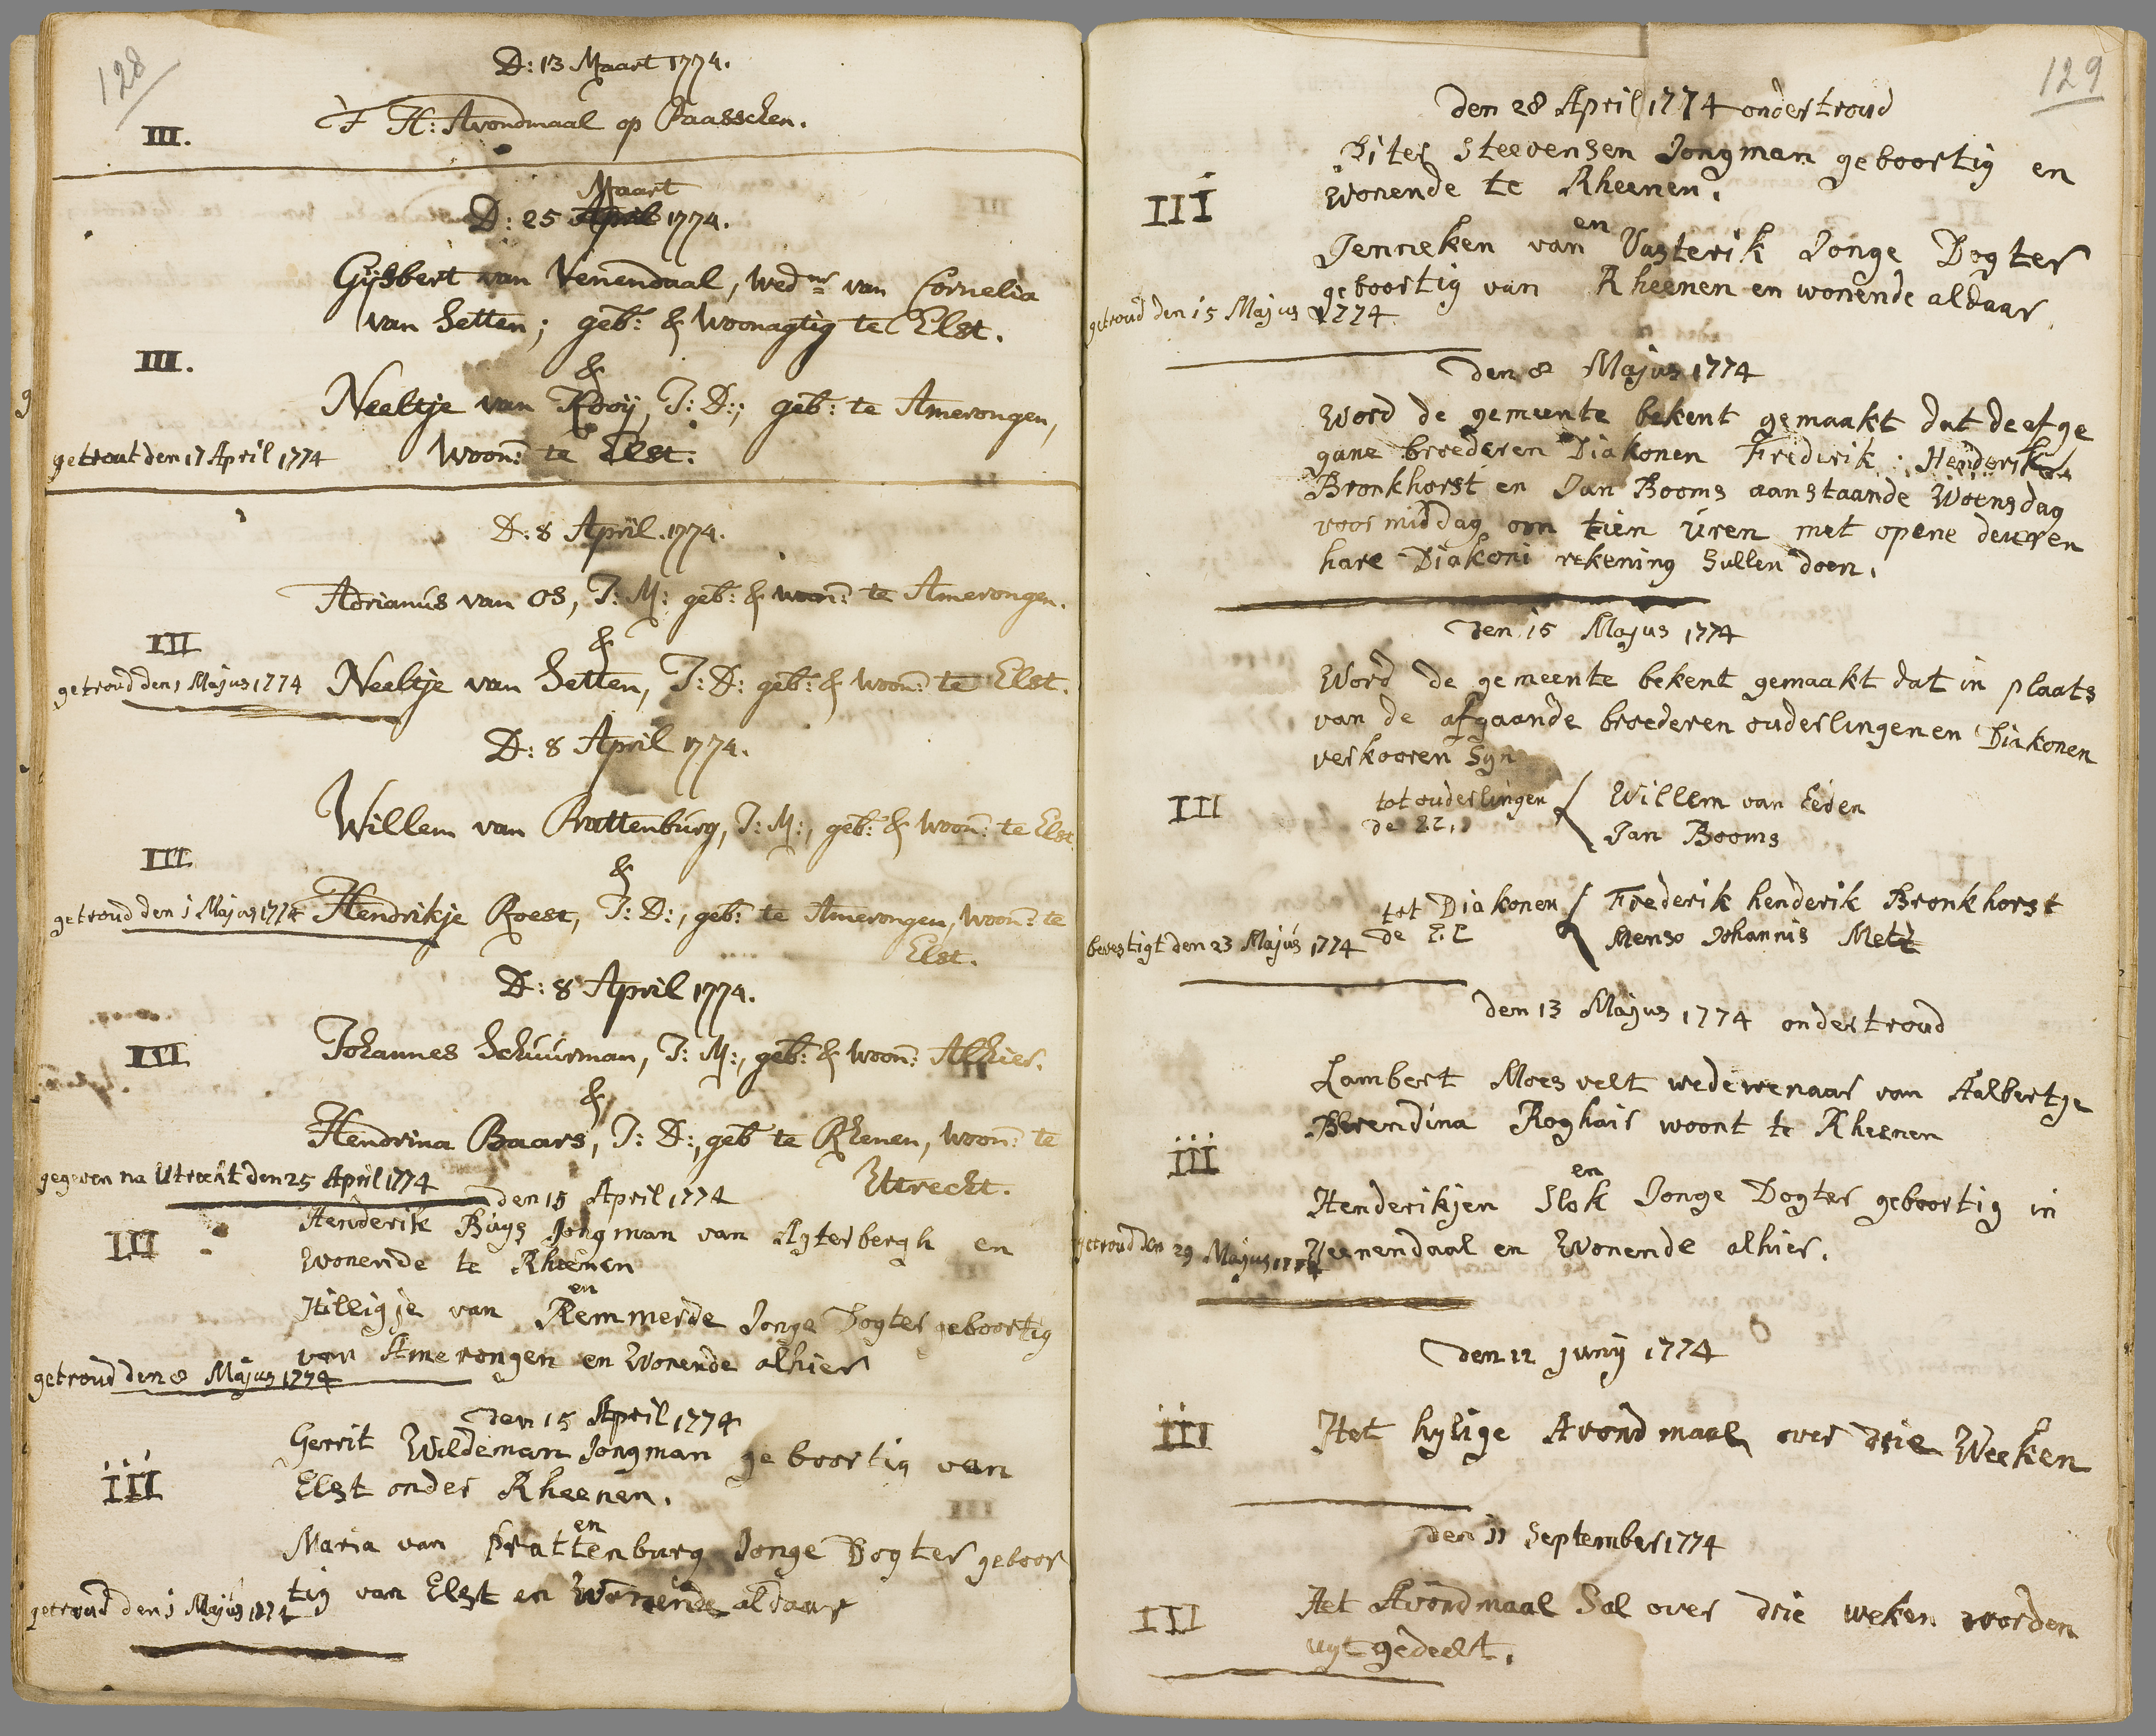 128
D: 13 Maart 1774.
III.
T H: Avondmaal op Paasschen.
Maart
D: 25 April 1774.
Gijsbert van Venendaal, wed.nr van Cornelia
van Setten; geb: & Woonagtig te Elst.
III.
&
Neeltje van Kooij, J: D:; geb: te Amerongen,
getrout den 17 April 1774
Woon: te Elst.
D: 8 April. 1774.
Adrianus van Os, J: M: geb: & woon: te Amerongen.
III
&
getroud den 1 Majus 1774
Neeltje van Setten, J: D: geb: & woon: te Elst.
D: 8 April 1774.
Willem van Prattenburg, J: M:, geb: & Woon: te Elst.
III
&
getroud den 1 Majus 1774
Hendrikje Roest, J: D:, geb: te Amerongen, Woon: te
Elst.
D: 8 April 1774.
III
Johannes Schuurman, J: M:, geb: & woon: Alhier.
&
Hendrina Baars, J: D:, geb te Rhenen, woon: te
Uttrecht.
gegeven na Utrecht den 25 April 1774
den 15 April 1774
III
Henderik Buys Jongman van Agterbergh en
wonende te Rheenen
en
Hilligje van Remmerde Jonge Dogter geboortig
van Amerongen en Wonende alhier
getroud den 8 Majus 1774
den 15 April 1774
Gerrit Wildeman Jongman geboortig van
III
Elst onder Rheenen.
en
Maria van Prattenburg Jonge Dogter geboor
tig van Elst en Wonende aldaar
getroud den 1 Majus 1774
129
den 28 April 1774 ondertroud
Piter Steevensen Jongman geboortig en
III
wonende te Rheenen.
en
Jenneken van Vasterik Jonge Dogter
geboortig van Rheenen en wonende aldaar.
getroud den 15 Majus 1774
den 8 Majus 1774
Word de gemeente bekent gemaakt dat de afge
gane broederen Diakonen Frederik Henderik
Bronkhorst en Jan Booms aanstaande Woensdag
voormiddag om tien uren met opene deuren
hare Diakoni rekening Sullen doen.
den 15 Majus 1774
Word de gemeente bekent gemaakt dat in plaats
van de afgaande broederen ouderlingen en Diakonen
verkooren Syn
III
tot ouderlingen
de E.E.
Willem van Eeden
Jan Booms
tot Diakonen
de E.E
Frederik henderik Bronkhorst
Menso Johannis Metz
bevestigt den 23 Majus 1774
den 13 Majus 1774 ondertroud
Lambert Moesvelt wedewenaar van Aalbertje
Berendina Roghair woont te Rheenen
III
en
Henderikjen Slok Jonge Dogter geboortig in
Veenendaal en Wonende alhier.
getroud den 29 Majus 1774
den 12 Junij 1774
III
Het hylige Avondmaal over drie Weeken
den 11 September 1774
III
Het Avondmaal Sal over drie weken worden
uyt gedeelt.